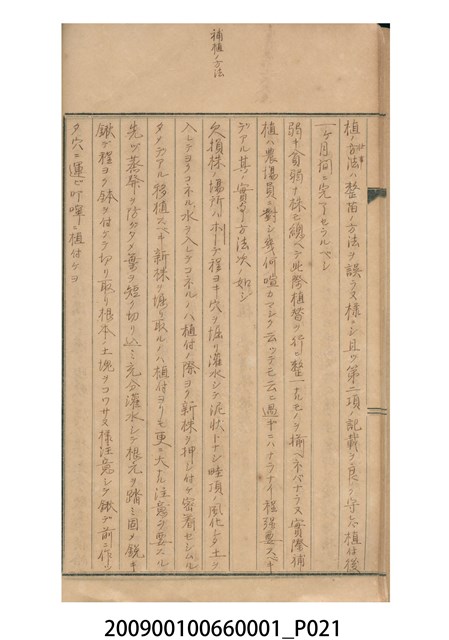 補植ノ方法
植ノ方法ハ整苗ノ方法ヲ誤ラヌ様ニシ且ツ第二項ノ記載ヲ良ク守ル植付後
一ケ月内ニ完了セラルベシ
弱キ貧弱ナ株ヒ總ベテ此際植替ヲ行ヒ整一ナルモノヲ揃ヘネバナラヌ實際補
植ハ農場員ニ對シ幾何喧カマシク云ッテモ云ヒ過ギニハナラナイ程強要スベキ
デアル其ノ實行方法次ノ如シ
欠損株ノ場所ハホーデ程ヨキ穴ヲ掘リ灌水シテ泥狀トナシ畦頂ノ風化シタ土ヲ
入レテヨクコネル水ヲ入レテコネルノハ植付ノ際ヨク新株ヲ押シ付ケ密着セシムル
タメデアル移植スベキ新株ヲ掘リ取ルノハ植付ヨリモ更ニ大ナル注意ヲ要スル
先ヅ蒸發ヲ防グタメ葉ヲ短ク切リ込ミ充分灌水シテ根元ヲ踏ミ固メ鋭キ
鍬デ程ヨク鉢ヲ付ケテ切リ取リ根本ノ土塊ヲコワサヌ様注意シテ鍬デ前ニ作ッ
タ穴ニ運ビ叮嚀ニ植付ケヨ
200900100660001_P021